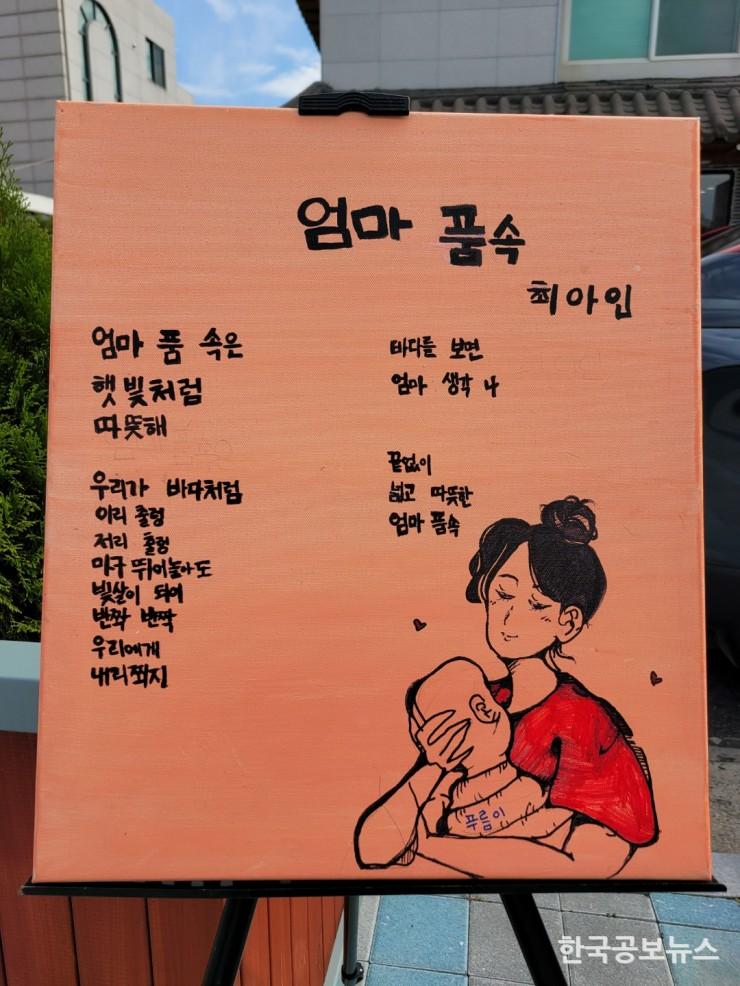 엄마 품속
최아인
엄마 품 속은
햇빛처럼
따뜻해
우리가 바다처럼
이리 출렁
저리 출렁
마구 뛰어놀아도
빛살이 되어
반짝 반짝
우리에게
내리쬐지
바다를 보면
엄마 생각 나
끝없이
넓고 따뜻한
엄마 품속
푸름이
한국공보뉴스